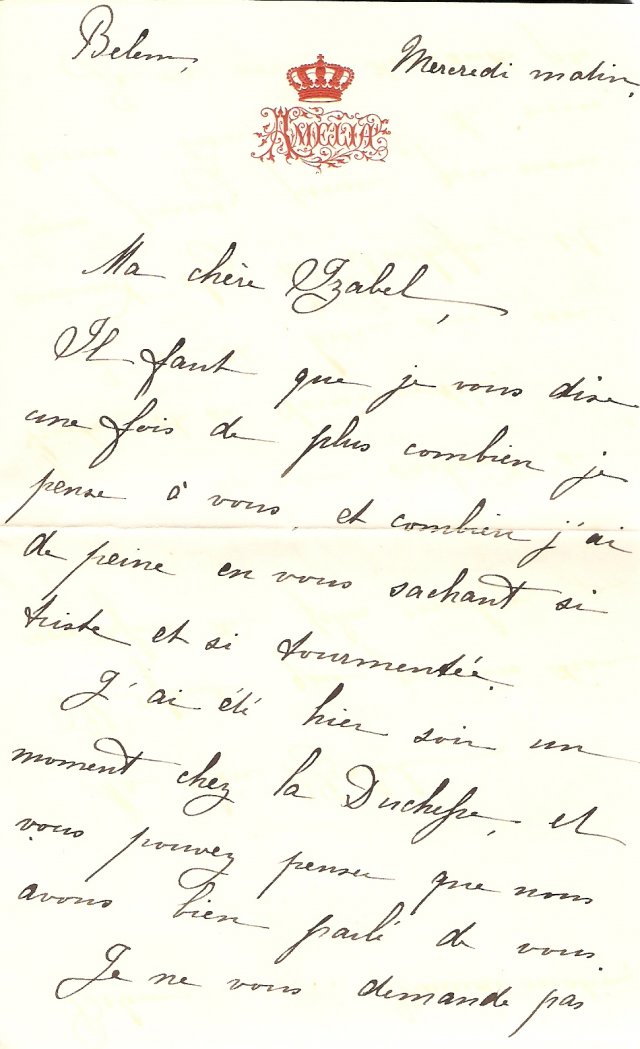 Belem, Mercredi matin.
AMELIA
Ma chère Izabel,
Il faut que je vous dise
une fois de plus combien je
pense à vous, et combien j'ai
de peine en vous sachant si
triste et si tourmentée.
J'ai été hier soir un
moment chez la Duchesse, et
vous pouvez penser que nous
avons bien parlé de vous.
Je ne vous demande pas